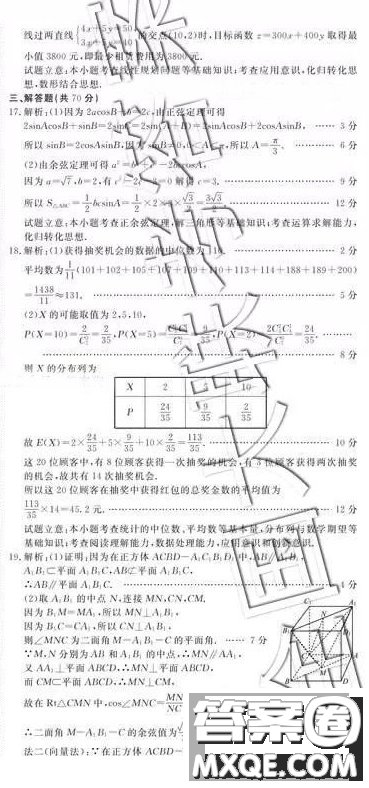 线过两直线{4x+5y=50, 3x+5y=40的交点(10,2)时,目标函数 z=300x+400y 取得最
小值 3800 元,即最少租赁费用为 3800 元.
试题立意:本小题考查线性规划问题等基础知识;考查应用意识,化归转化思
想,数形结合思想.
三、解答题(共 70 分)
17.解析:(1)因为 2acosB+b=2c,由正弦定理可得
2sinAcosB+sinB=2sinC=2sin(A+B)=2sinAcosB+2cosAsinB, …… 3 分
所以 sinB=2cosAsinB,因为 sinB≠0,0<A<π,所以 A=π/3. …… 6 分
(2)由余弦定理可得 a²=b²+c²-2bccosA,
因为 a=√7,b=2,有 c²-2c-3=0 解得 c=3. …… 9 分
所以 S△ABC=1/2 bcsinA=1/2×2×3×√3/2=3√3/2. …… 12 分
试题立意:本小题考查正余弦定理,解三角形等基础知识;考查运算求解能力,
化归转化思想.
18.解析:(1)获得抽奖机会的数据的中位数为 110. …… 2 分
平均数为 1/11(101+102+105+107+109+110+113+114+188+189+200)
=1438/11≈131. …… 5 分
(2)X 的可能取值为 2,5,10,
P(X=10)=2/ =2/35, P(X=5)= =9/35, P(X=2)= =24/35,
…… 8 分
则 X 的分布列为
X 2 5 10
P 24/35 9/35 2/35
故 E(X)=2×24/35+5×9/35+10×2/35=113/35. …… 10 分
这 20 位顾客中,有 8 位顾客获得一次抽奖的机会,有 3 位顾客获得两次抽奖
的机会,故共有 14 次抽奖机会.
所以这 20 位顾客在抽奖中获得红包的总奖金数的平均值为
113/35×14=45.2 元. …… 12 分
试题立意:本小题考查统计的中位数、平均数等基本量,分布列与数学期望等
基础知识;考查阅读理解能力,数据处理能力,应用意识和创新意识.
19.解析:(1)证明:因为在正方体 ACBD-A₁C₁B₁D₁ 中,AB∥A₁B₁,
A₁B₁⊂平面 A₁B₁C,AB⊄平面 A₁B₁C,
∴AB∥平面 A₁B₁C. …… 4 分
(2)取 A₁B₁ 的中点 N,连接 MN,CN,CM.
因为 B₁M=MA₁,所以 MN⊥A₁B₁,
因为 B₁C=CA₁,所以 CN⊥A₁B₁,
则∠MNC 为二面角 M-A₁B₁-C 的平面角. …… 7 分
∵M,N 分别为 AB 和 A₁B₁ 的中点,∴MN∥AA₁,
又 AA₁⊥平面 ABCD,∴MN⊥平面 ABCD,
而 CM⊂平面 ABCD,∴MN⊥CM,
故在 Rt△CMN 中,cos∠MNC=MN/NC
∴二面角 M-A₁B₁-C 的余弦值为
法二(向量法):∵在正方体 ACBD-
答案卷
MXQE.COM